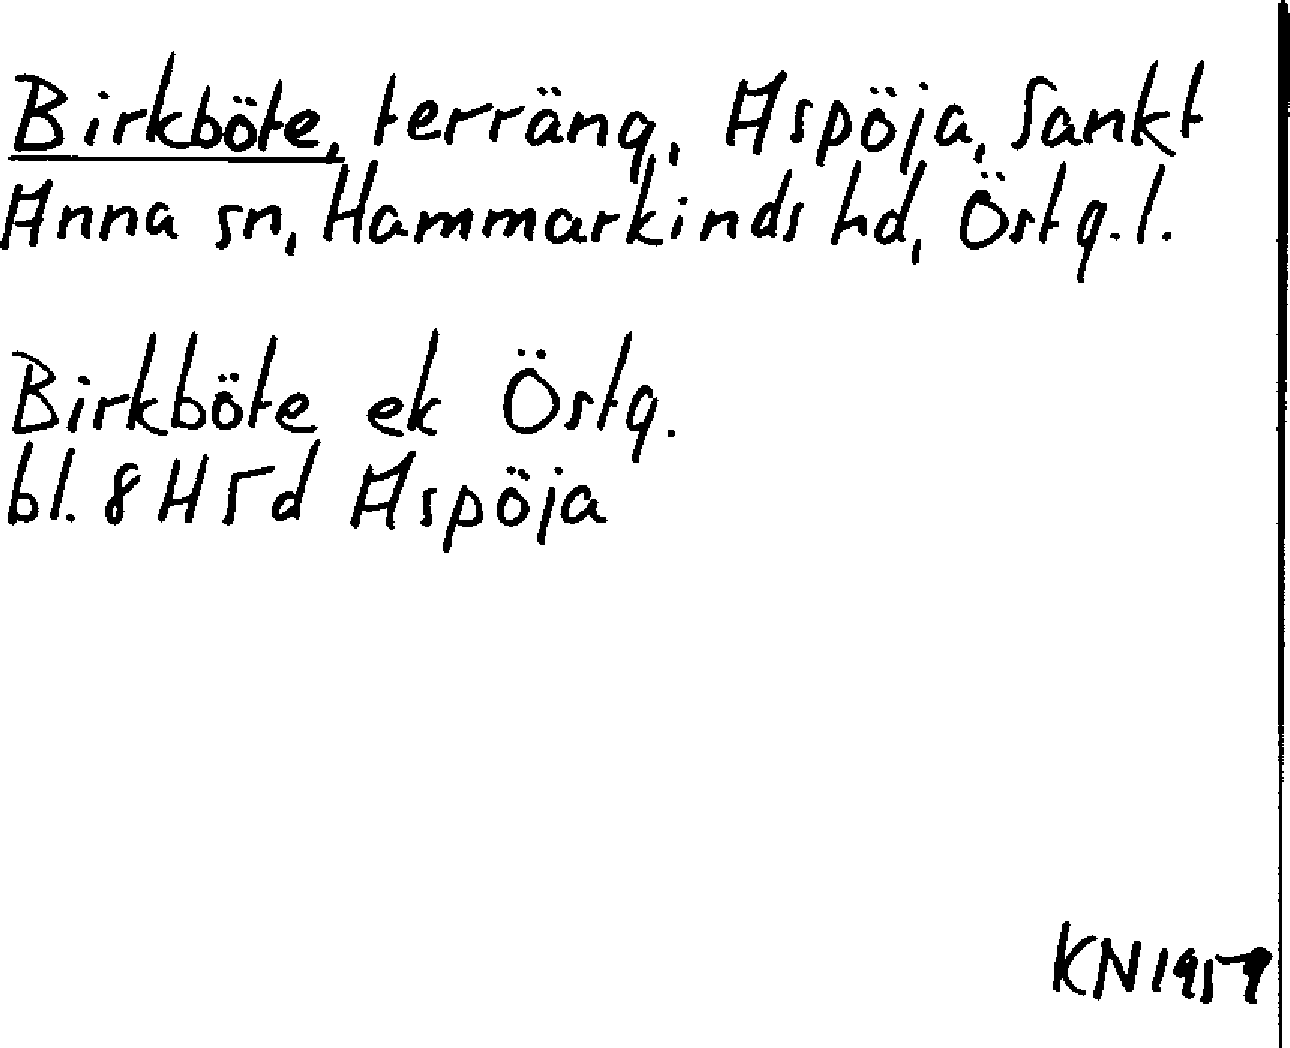 Birkböte, terräng, Aspöja, Sankt
Anna sn, Hammarkinds hd, Östg.l.
Birkböte ek Östg.
bl. 8H5d Aspöja
KN1959